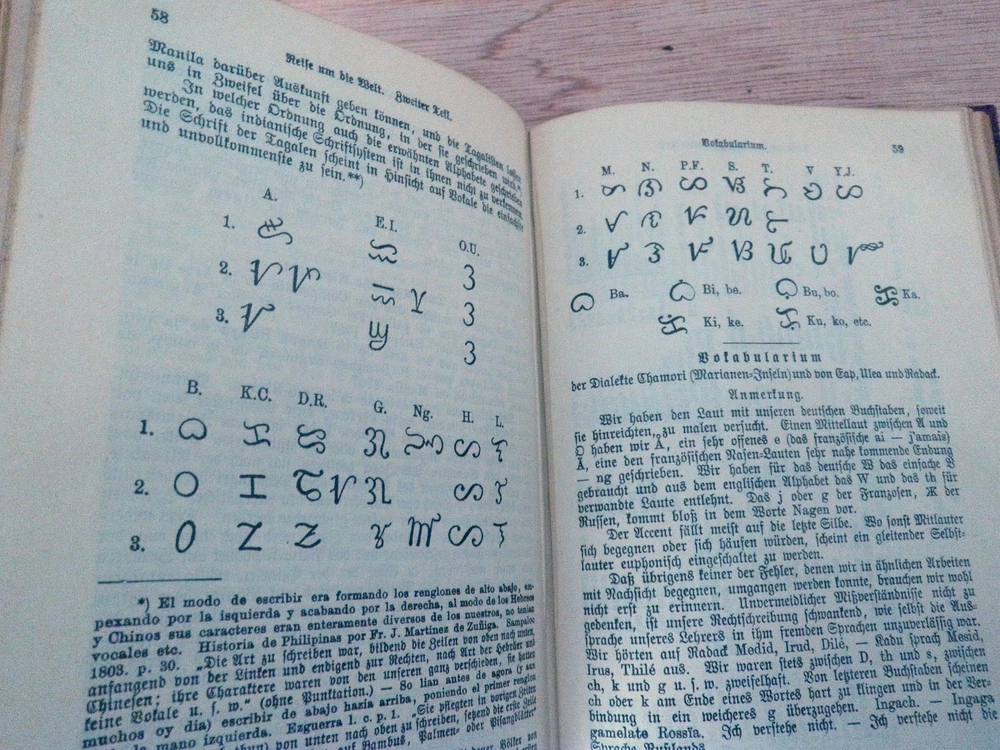 58
Reise um die Welt. Zweiter Teil.
Manila darüber Auskunft geben können, und die Tagalisten lassen
uns in Zweifel über die Ordnung, in der sie geschrieben wird.*)
In welcher Ordnung auch die erwähnten Alphabete geschrieben
werden, das indianische Schriftsystem ist in ihnen nicht zu verkennen.
Die Schrift der Tagalen scheint in Hinsicht auf Vokale die einfachste
und unvollkommenste zu sein.**)
A. E.I. O.U.
1.
2.
3.
B. K.C. D.R. G. Ng. H. L.
1.
2.
3.
*) El modo de escribir era formando los renglones de alto abajo, em-
pexando por la izquierda y acabando por la derecha, al modo de los Hebreos
y Chinos sus caracteres eran enteramente diversos de los nuestros, no tenian
vocales etc. Historia de Philipinas por Fr. J. Martinez de Zuñiga. Sampaloc
1803. p. 30. „Die Art zu schreiben war, bildend die Zeilen von oben nach unten,
anfangend von der Linken und endigend zur Rechten, nach Art der Hebräer und
Chinesen; ihre Charaktere waren von den unseren ganz verschieden, sie hatten
keine Vokale u. s. w.“ (ohne Punktation.) — So lian antes de agora (y aun
muchos oy dia) escribir de abajo hazia arriba, poniendo el primer renglon
la mano izquierda. Ezguerra l. c. p. 1. „Sie pflegten in vorigen Zeiten
von unten nach oben zu schreiben, setzend die erste Zeile
auf Bambus, Palmen- oder Pisangblätter
Vokabularium.
59
M. N. P.F. S. T. V Y.J.
1.
2.
3.
Ba. Bi, be. Bu, bo. Ka.
Ki, ke. Ku, ko, etc.
Vokabularium
der Dialekte Chamori (Marianen-Inseln) und von Eap, Ulea und Radack.
Anmerkung.
Wir haben den Laut mit unseren deutschen Buchstaben, soweit
sie hinreichten, zu malen versucht. Einen Mittellaut zwischen A und
O haben wir Å, ein sehr offenes e (das französische ai — j'amais)
Ä, eine den französischen Nasen-Lauten sehr nahe kommende Endung
— ng geschrieben. Wir haben für das deutsche W das einfache V
gebraucht und aus dem englischen Alphabet das W und das th für
verwandte Laute entlehnt. Das j oder g der Franzosen, Ж der
Russen, kommt bloß in dem Worte Nagen vor.
Der Accent fällt meist auf die letzte Silbe. Wo sonst Mitlauter
sich begegnen oder sich häufen würden, scheint ein gleitender Selbst-
lauter euphonisch eingeschaltet zu werden.
Daß übrigens keiner der Fehler, denen wir in ähnlichen Arbeiten
mit Nachsicht begegnen, umgangen werden konnte, brauchen wir wohl
nicht erst zu erinnern. Unvermeidlicher Mißverständnisse nicht zu
gedenken, ist unsere Rechtschreibung schwankend, wie selbst die Aus-
sprache unseres Lehrers in ihm fremden Sprachen unzuverlässig war.
Wir hörten auf Radack Medid, Irud, Dilé, — Kadu sprach Mesid,
Irus, Thilé aus. Wir waren stets zwischen D, th und s, zwischen
ch, k und g u. s. w. zweifelhaft. Von letzteren Buchstaben scheinen
ch oder k am Ende eines Wortes hart zu klingen und in der Ver-
bindung in ein weicheres g überzugehen. Ingach. — Ingaga
gamelate Rossia. Ich verstehe nicht. — Ich verstehe nicht die
Sprache Rußlands.